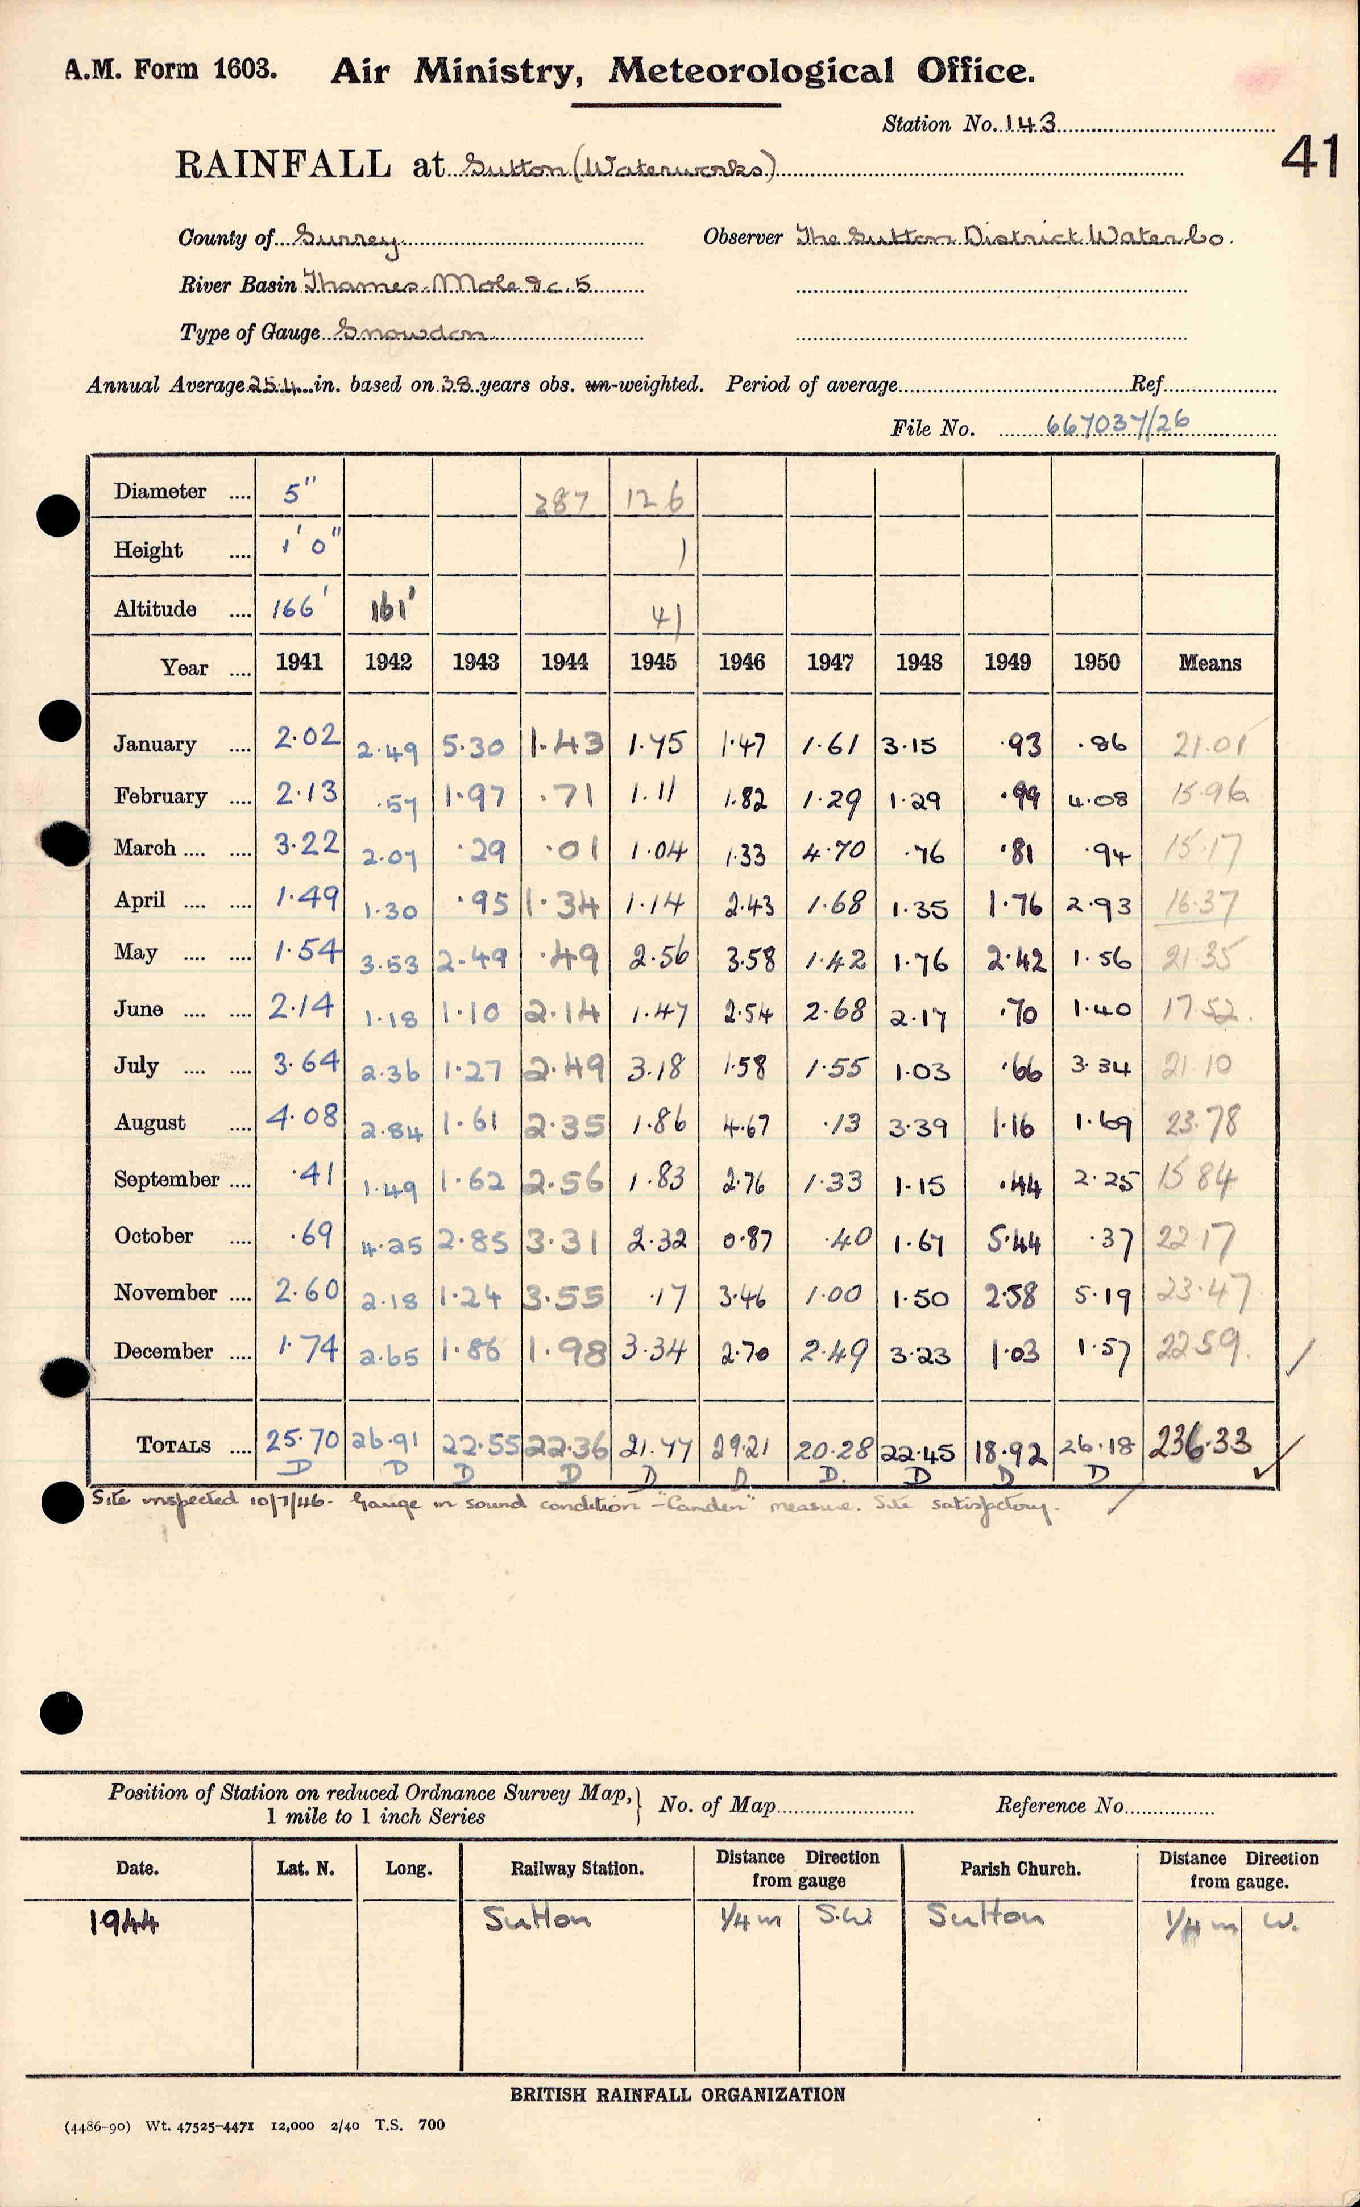 A.M. Form 1603. Air Ministry, Meteorological Office.
Station No. 143
41
RAINFALL at Sutton (Waterworks)
County of Surrey Observer The Sutton District Water Co.
River Basin Thames. Mole &c. 5
Type of Gauge Snowdon
Annual Average 25.4 in. based on 38 years obs. un-weighted. Period of average Ref.
File No. 667037/26
Diameter .... 5" 287 126
Height .... 1' 0" 1
Altitude .... 166' 161' 41
Year .... 1941 1942 1943 1944 1945 1946 1947 1948 1949 1950 Means
January .... 2.02 2.49 5.30 1.43 1.75 1.47 1.61 3.15 .93 .86 21.01
February .... 2.13 .57 1.97 .71 1.11 1.82 1.29 1.29 .99 4.08 15.96
March .... .... 3.22 2.07 .29 .01 1.04 1.33 4.70 .76 .81 .94 15.17
April .... .... 1.49 1.30 .95 1.34 1.14 2.43 1.68 1.35 1.76 2.93 16.37
May .... .... 1.54 3.53 2.49 .49 2.56 3.58 1.42 1.76 2.42 1.56 21.35
June .... .... 2.14 1.18 1.10 2.14 1.47 2.54 2.68 2.17 .70 1.40 17.52
July .... .... 3.64 2.36 1.27 2.49 3.18 1.58 1.55 1.03 .66 3.34 21.10
August .... 4.08 2.84 1.61 2.35 1.86 4.67 .13 3.39 1.16 1.69 23.78
September .... .41 1.49 1.62 2.56 1.83 2.76 1.33 1.15 .44 2.25 15.84
October .... .69 4.25 2.85 3.31 2.32 0.87 .40 1.67 5.44 .37 22.17
November .... 2.60 2.18 1.24 3.55 .17 3.46 1.00 1.50 2.58 5.19 23.47
December .... 1.74 2.65 1.86 1.98 3.34 2.70 2.49 3.23 1.03 1.57 22.59
TOTALS .... 25.70 26.91 22.55 22.36 21.77 29.21 20.28 22.45 18.92 26.18 236.33
D D D D D D D. D D D
Site inspected 10/7/46. Gauge in sound condition - "Camden" measure. Site satisfactory.
Position of Station on reduced Ordnance Survey Map, 1 mile to 1 inch Series } No. of Map Reference No.
Date. Lat. N. Long. Railway Station. Distance Direction from gauge Parish Church. Distance Direction from gauge.
1944 Sutton 1/4 m S.W Sutton 1/4 m W.
BRITISH RAINFALL ORGANIZATION
(4486-90) Wt. 47525-4471 12,000 2/40 T.S. 700